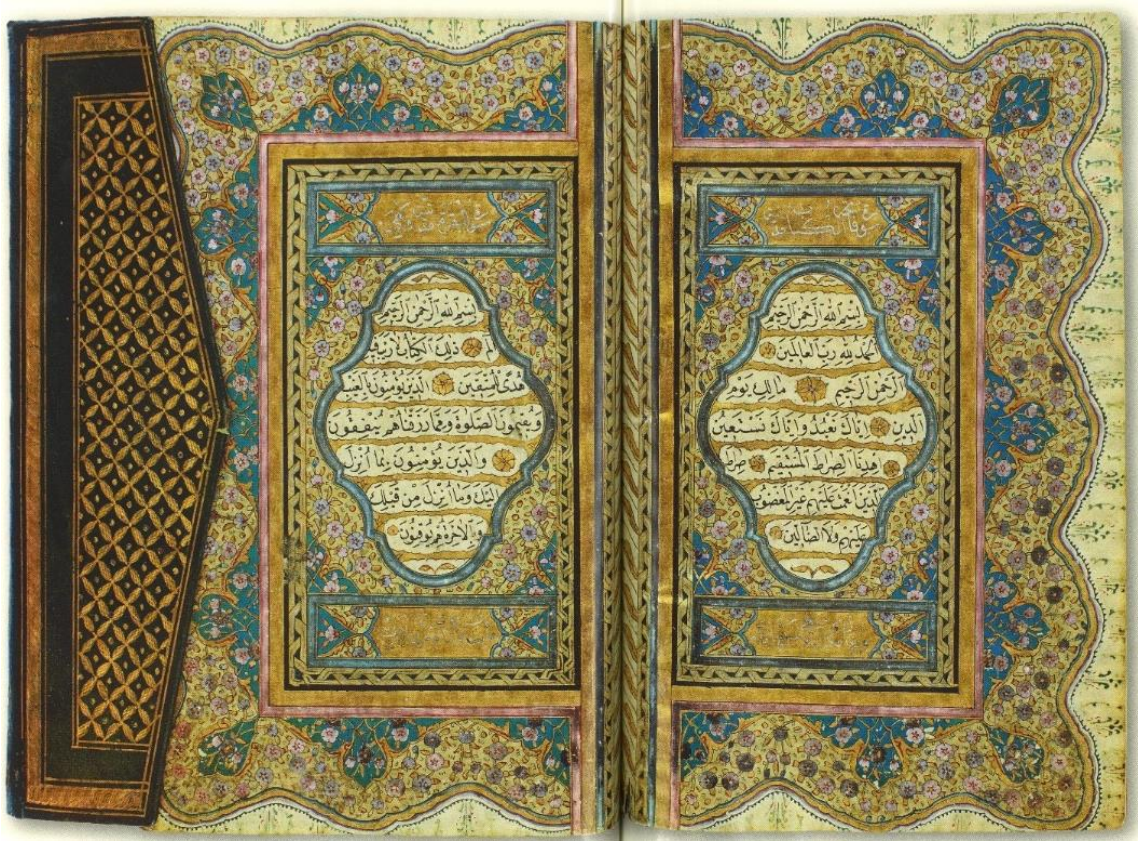 بِسْمِ اللهِ الرَّحْمٰنِ الرَّحِيمِ
اَلْحَمْدُ لِلّٰهِ رَبِّ الْعَالَمِينَ
اَلرَّحْمٰنِ الرَّحِيمِ مَالِكِ يَوْمِ
الدِّينِ اِيَّاكَ نَعْبُدُ وَاِيَّاكَ نَسْتَعِينُ
اِهْدِنَا الصِّرَاطَ الْمُسْتَقِيمَ صِرَاطَ
الَّذِينَ اَنْعَمْتَ عَلَيْهِمْ غَيْرِ الْمَغْضُوبِ
عَلَيْهِمْ وَلَا الضَّالِّينَ
بِسْمِ اللهِ الرَّحْمٰنِ الرَّحِيمِ
الٓمٓ ذٰلِكَ الْكِتَابُ لَا رَيْبَ فِيهِ
هُدًى لِلْمُتَّقِينَ اَلَّذِينَ يُؤْمِنُونَ بِالْغَيْبِ
وَيُقِيمُونَ الصَّلٰوةَ وَمِمَّا رَزَقْنَاهُمْ يُنْفِقُونَ
وَالَّذِينَ يُؤْمِنُونَ بِمَا اُنْزِلَ
اِلَيْكَ وَمَا اُنْزِلَ مِنْ قَبْلِكَ
وَبِالْاٰخِرَةِ هُمْ يُوقِنُونَ